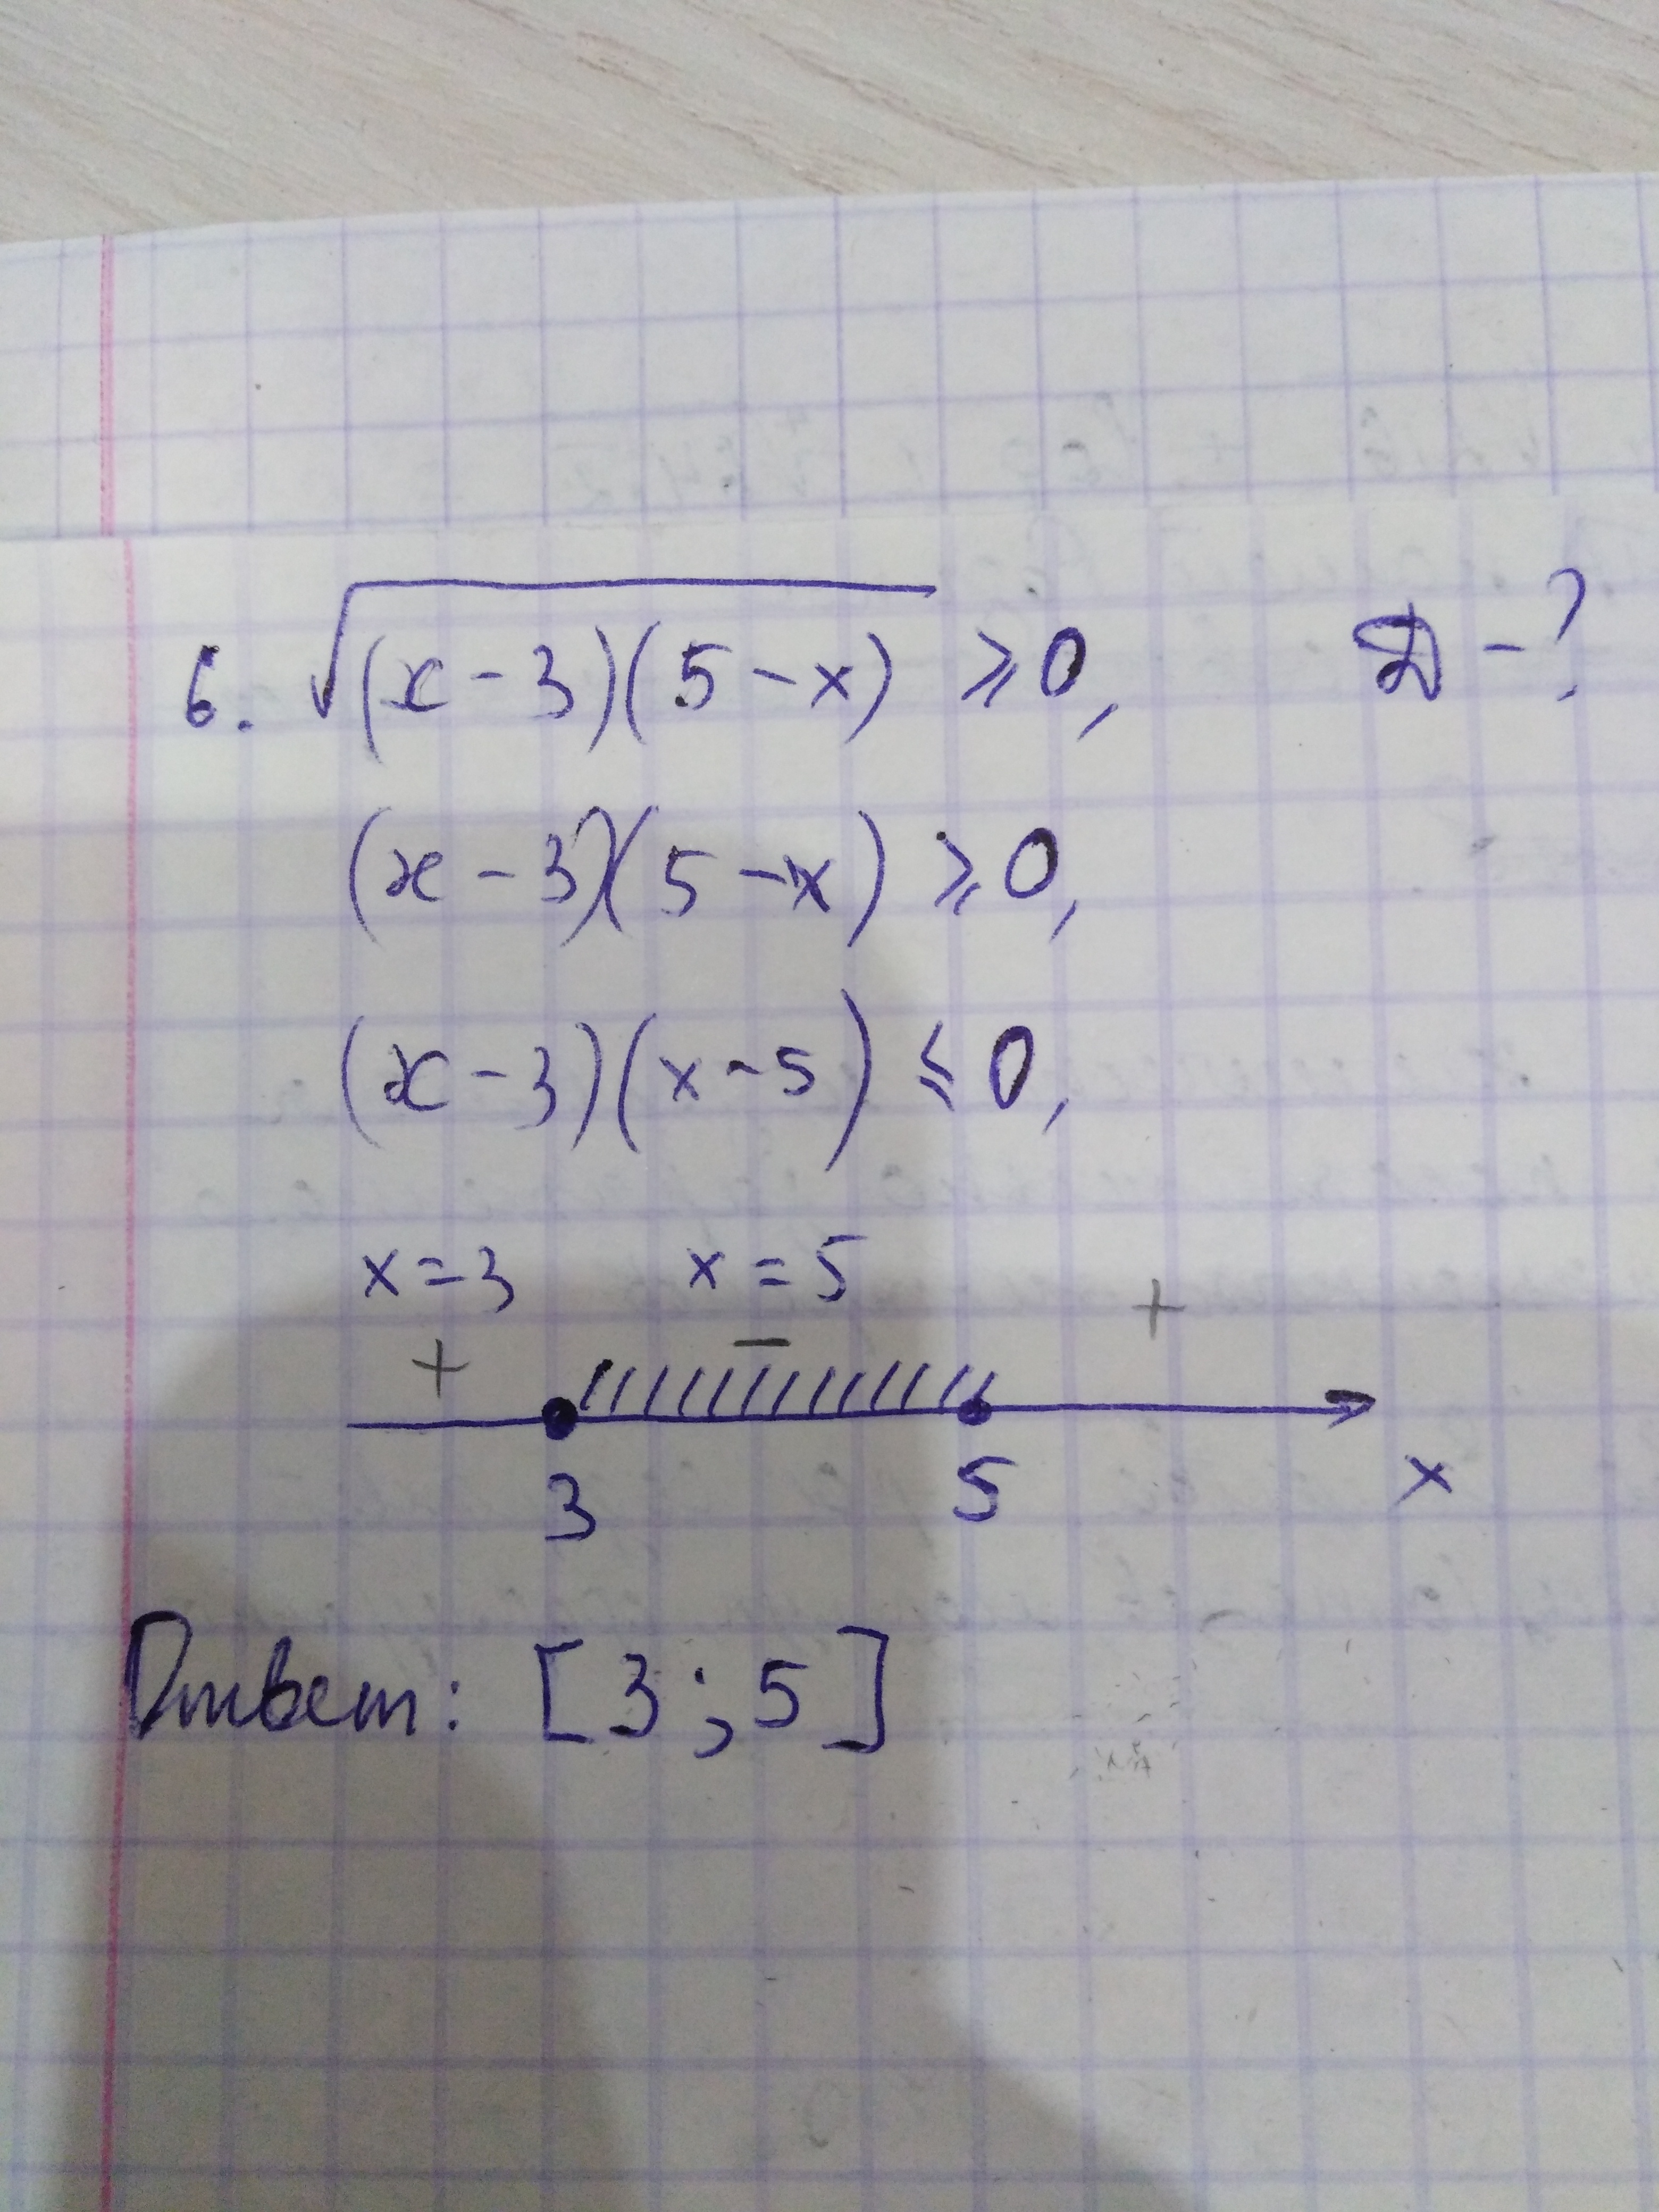 6. √(x-3)(5-x) ⩾ 0, D-?
(x-3)(5-x) ⩾ 0,
(x-3)(x-5) ⩽ 0,
x=3 x=5
+ - +
3 5 x
Ответ: [3;5]